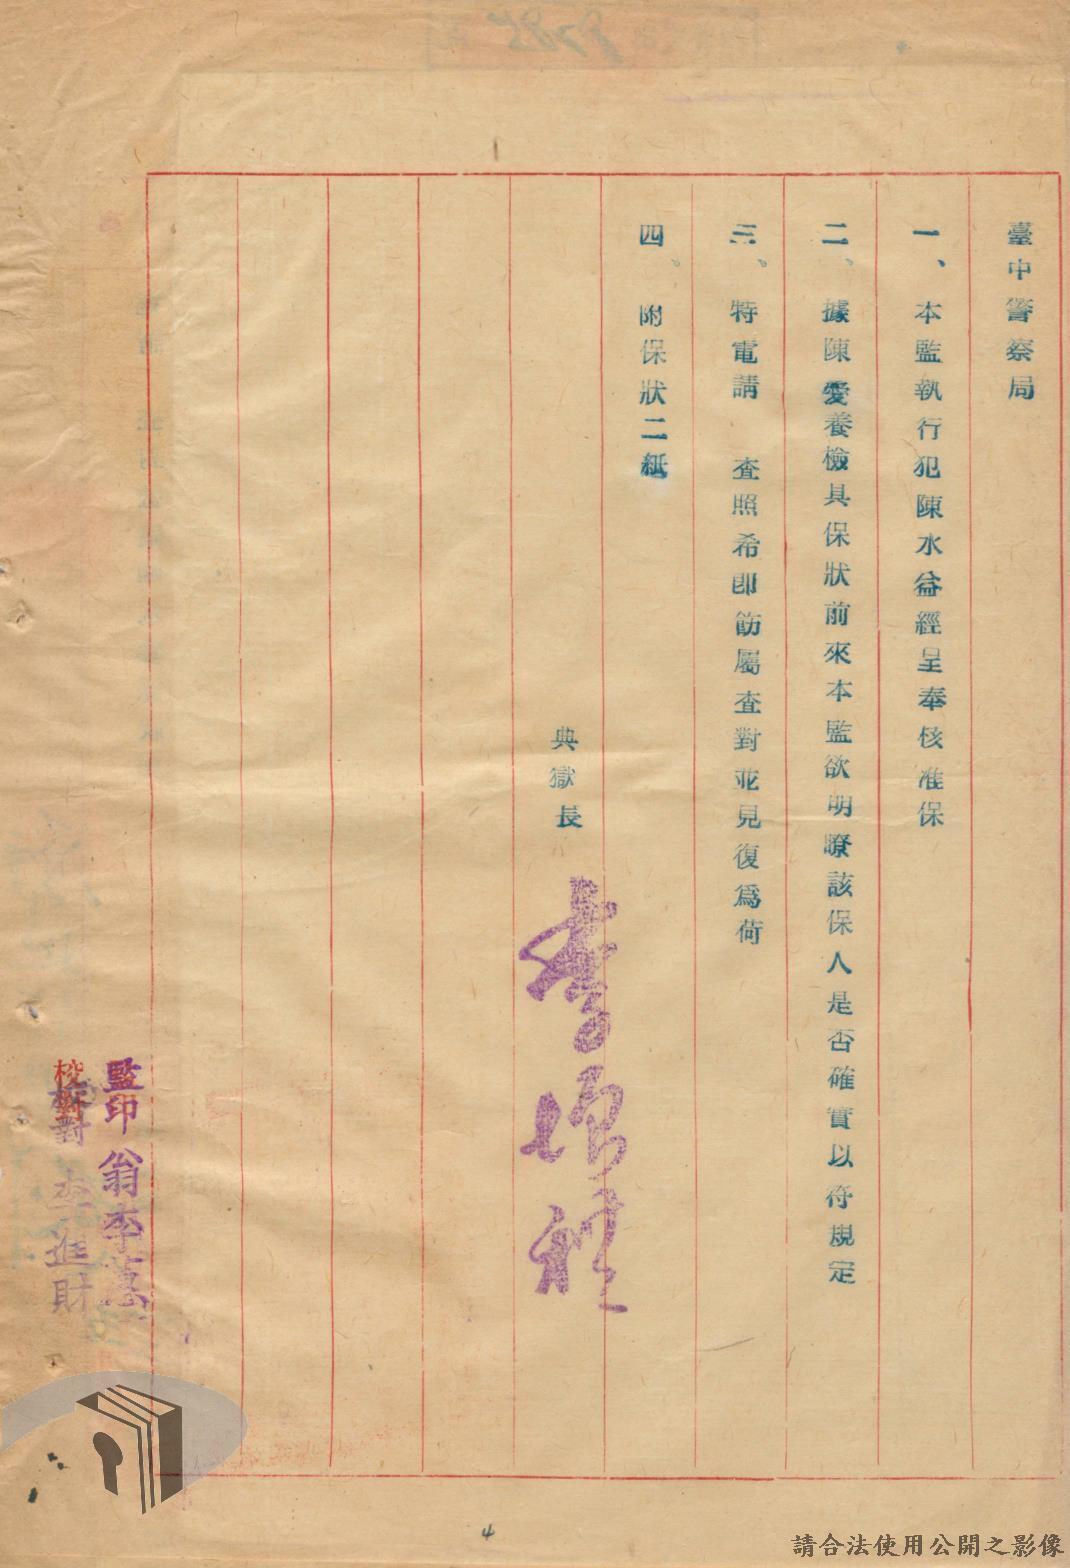 臺中警察局
一、本監執行犯陳水益經呈奉核准保
二、據陳愛養檢具保狀前來本監欲明瞭該保人是否確實以符規定
三、特電請　查照希即飭屬查對並見復為荷
四、附保狀二紙
典獄長
監印
校對
進財
4
請合法使用公開之影像